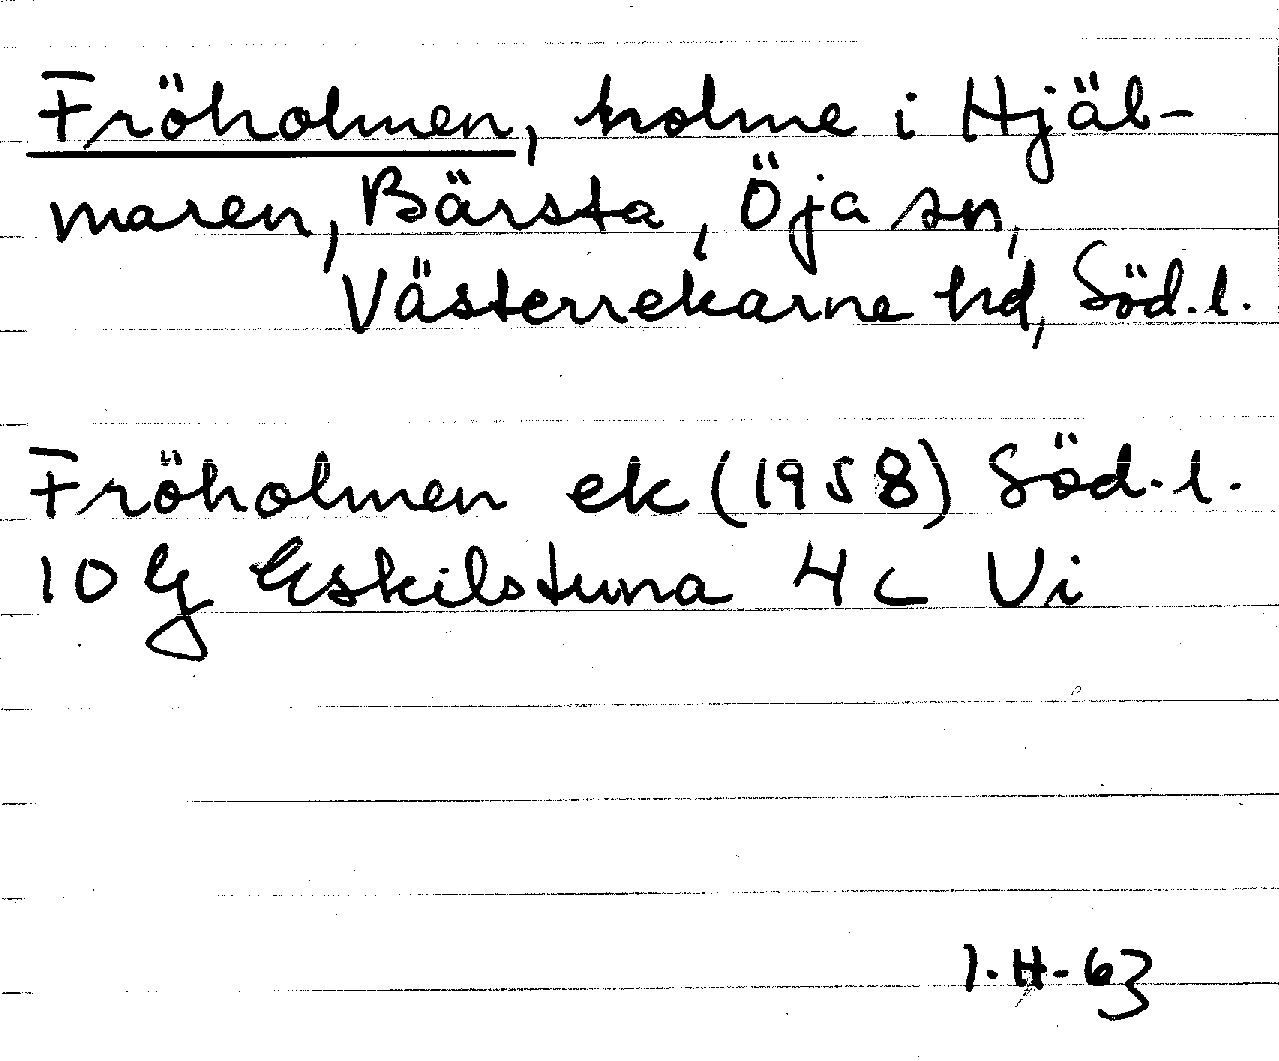 Fröholmen, holme i Hjäl-
maren, Bärsta, Öja sn,
Västerrekarne hd, Söd.l.
Fröholmen ek (1958) Söd.l.
10 G Eskilstuna 4 c Vi
1.H-63